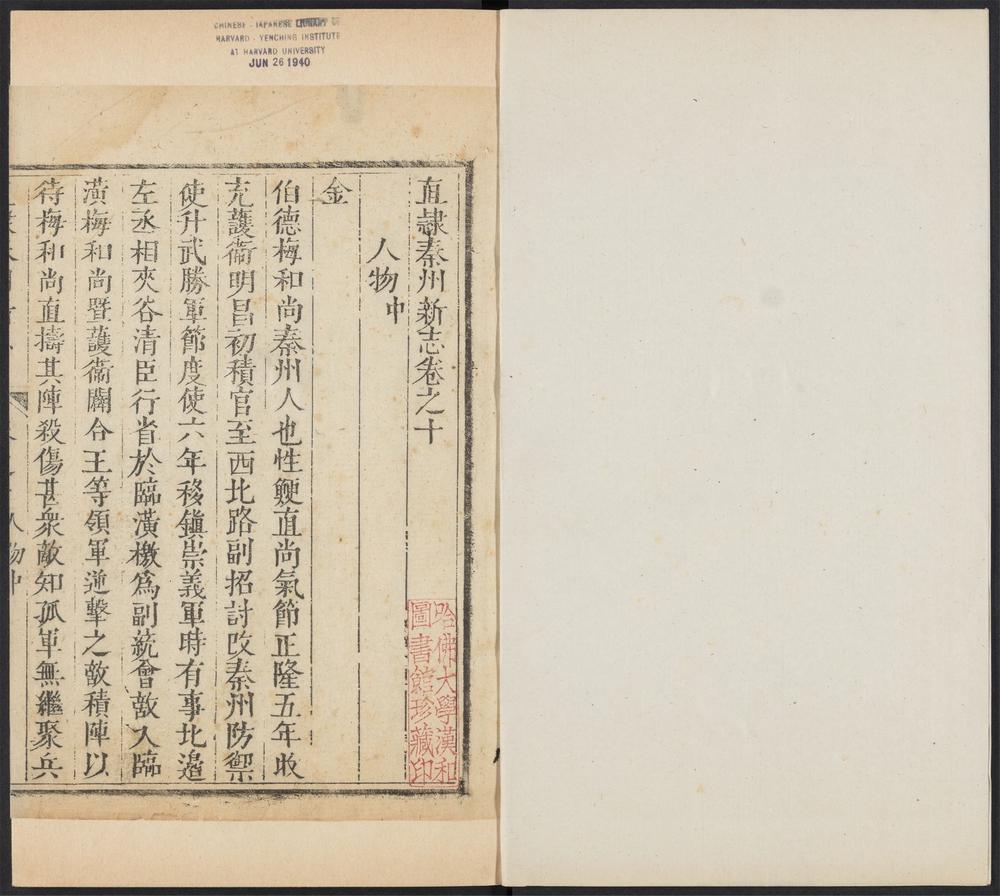 CHINESE - JAPANESE LIBRARY OF
HARVARD - YENCHING INSTITUTE
AT HARVARD UNIVERSITY
JUN 26 1940
直隷秦州新志卷之十
人物中
金
伯德梅和尚秦州人也性鯁直尚氣節正隆五年收
充護衛明昌初積官至西北路副招討改秦州防禦
使升武勝軍節度使六年移鎮崇義軍時有事北邊
左丞相夾谷清臣行省於臨潢檄爲副統會敵入臨
潢梅和尚暨護衛闢合王等領軍逆擊之敵積陣以
待梅和尚直擣其陣殺傷甚衆敵知孤軍無繼聚兵
人物中
哈佛大學漢和
圖書館珍藏印